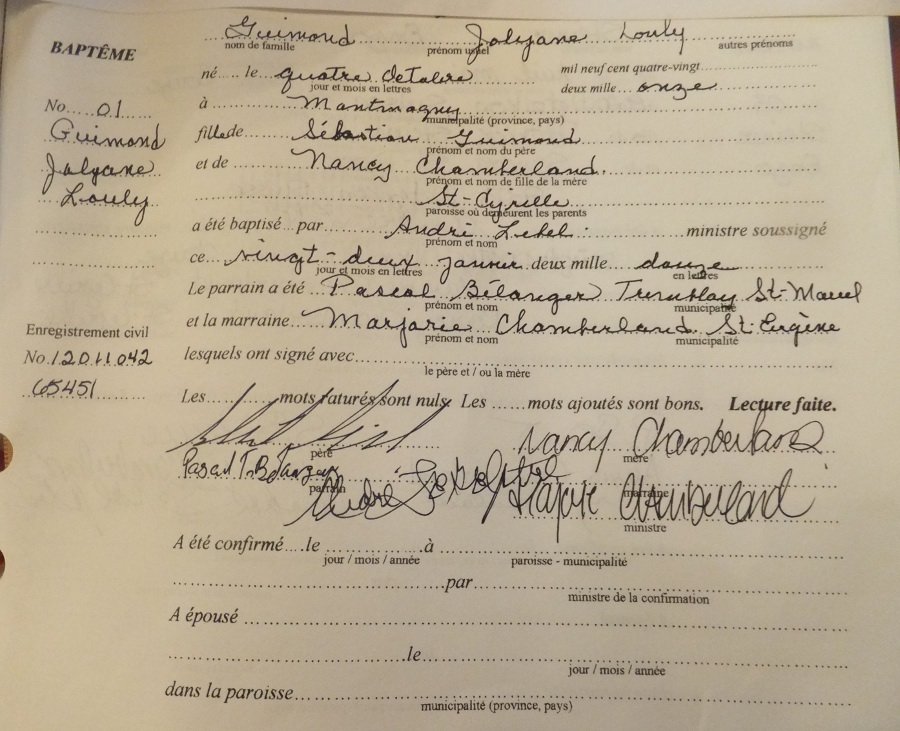 BAPTÊME
Guimond Jolyane Louly
nom de famille prénom usuel autres prénoms
né.... le quatre octobre mil neuf cent quatre-vingt
jour et mois en lettres deux mille onze
No. 01 à Montmagny
municipalité (province, pays)
Guimond fille de Sébastien Guimond
prénom et nom du père
Jolyane et de Nancy Chamberland
prénom et nom de fille de la mère
Louly St-Cyrille
paroisse où demeurent les parents
a été baptisé par André ministre soussigné
prénom et nom
ce vingt-deux janvier deux mille douze
jour et mois en lettres en lettres
Le parrain a été Pascal Bélanger Tremblay St-Marcel
prénom et nom municipalité
Enregistrement civil et la marraine Marjorie Chamberland St-Eugène
prénom et nom municipalité
No. 12011042 lesquels ont signé avec
le père et / ou la mère
65451 Les ...... mots raturés sont nuls. Les ...... mots ajoutés sont bons. Lecture faite.
Nancy Chamberland
père mère
Pascal T-Bélanger
parrain marraine
André ptre Marjorie Chamberland
ministre
A été confirmé ....le à
jour / mois / année paroisse - municipalité
par
ministre de la confirmation
A épousé
le
jour / mois / année
dans la paroisse
municipalité (province, pays)